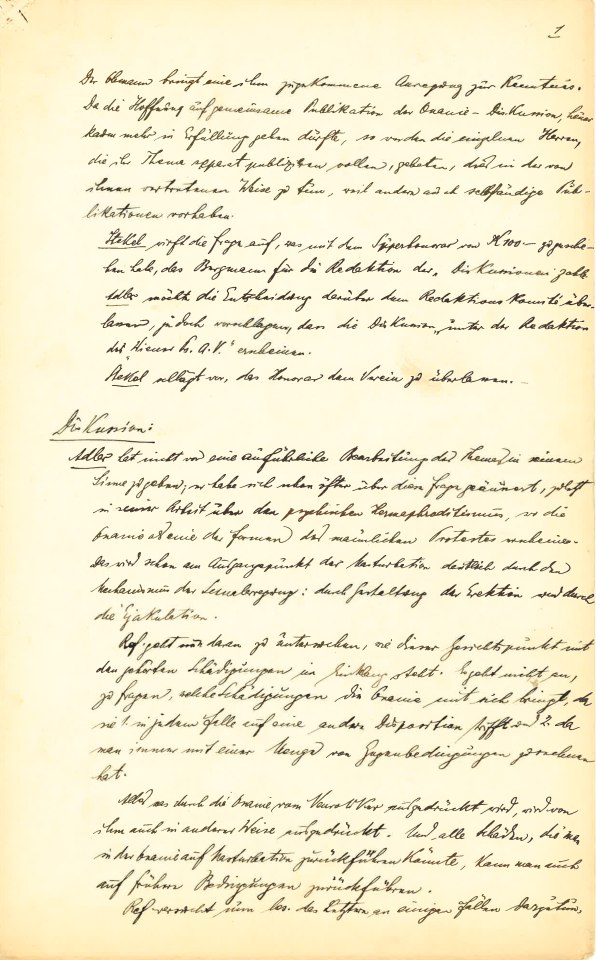 1
Der Obmann bringt eine ihm zugekommene Anregung zur Kenntnis.
Da die Hoffnung auf gemeinsame Publikation der Onanie-Diskussion, heuer
kaum mehr in Erfüllung gehen dürfte, so werden die einzelnen Herren,
die ihr Thema apart publizieren wollen, gebeten, dies in der von
ihnen vertretenen Weise zu tun, weil andere auch selbständige Pub-
likationen vorhaben.
Stekel wirft die Frage auf, was mit dem Superhonorar von K 100– zu gesche-
hen habe, das Bergmann für die Redaktion der „Diskussionen" zahle.
Adler möchte die Entscheidung darüber dem Redaktions Komité über-
lassen, jedoch vorschlagen, dass die Diskussion „unter der Redaktion
des Wiener Ps. A. V." erscheinen.
Stekel schlägt vor, das Honorar dem Verein zu überlassen. –
Diskussion:
Adler hat nicht vor eine ausführliche Bearbeitung des Themas in seinem
Sinne zu geben; er habe sich schon öfter über diese Frage geäussert, zuletzt
in seiner Arbeit über den psychischen Hermaphroditismus, wo die
Onanie als eine der Formen des männlichen Protestes erscheine.
Das wird schon am Ausgangspunkt der Masturbation deutlich durch den
Mechanismus der Sexualerregung: durch Gestaltung der Erektion und durch
die Ejakulation.
Ref. geht nun daran zu untersuchen, wie dieser Gesichtspunkt mit
den gehörten Schädigungen im Einklang steht. Es geht nicht an,
zu fragen, welche Schädigungen die Onanie mit sich bringt, da
sie 1. in jedem Falle auf eine andere Disposition trifft und 2. da
man immer mit einer Menge von Gegenbedingungen zu rechnen
hat.
Alles was durch die Onanie vom Neurotiker ausgedrückt wird, wird von
ihm auch in anderer Weise ausgedrückt. Und alle Schäden, die man
in der Onanie auf Masturbation zurückführen könnte, kann man auch
auf frühere Bedingungen zurückführen.
Ref. versucht nun bes. das Letztere an einigen Fällen darzutun,